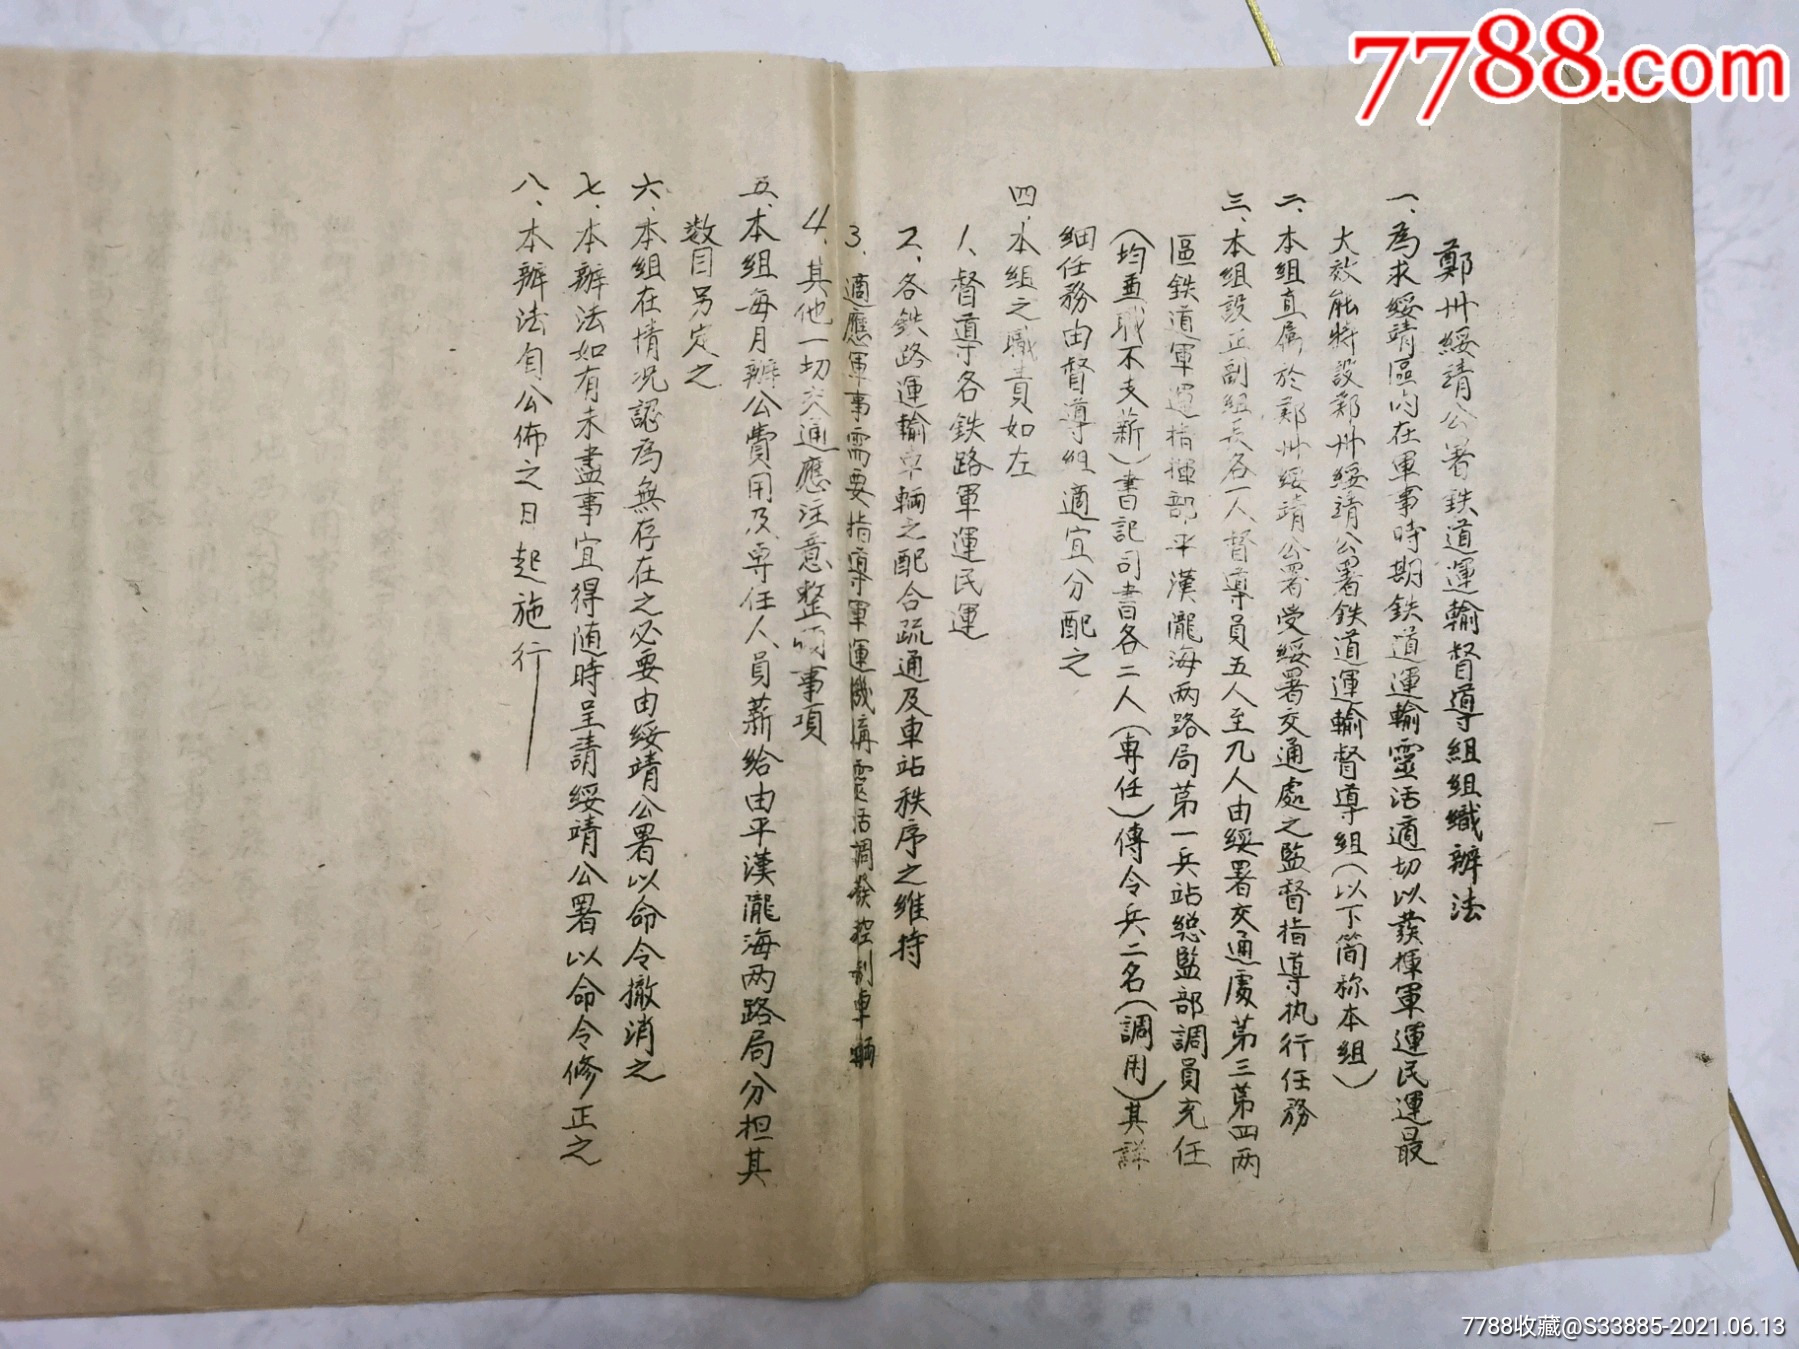 7788.com
鄭州綏靖公署鉄道運輸督導組組織辦法
一、為求綏靖區内在軍事時期鉄道運輸靈活適切以發揮軍運民運最
大效能特設鄭州綏靖公署鉄道運輸督導組(以下簡称本組)
二、本組直属於鄭州綏靖公署受綏署交通處之監督指導执行任務
三、本組設正副組長各一人督導員五人至九人由綏署交通處第三第四两
區鉄道軍運指揮部平漢隴海两路局第一兵站總監部調員充任
(均兼職不支薪)書記司書各二人(専任)傳令兵二名(調用)其詳
細任務由督導組適宜分配之
四、本組之職責如左
1、督導各鉄路軍運民運
2、各鉄路運輸車輛之配合疏通及車站秩序之維持
3、適應軍事需要指導軍運機構靈活調發控制車輛
4、其他一切交通應注意整頓事項
五、本組每月辦公費用及専任人員薪給由平漢隴海两路局分担其
数目另定之
六、本組在情况認為無存在之必要由綏靖公署以命令撤消之
七、本辦法如有未盡事宜得随時呈請綏靖公署以命令修正之
八、本辦法自公佈之日起施行
7788收藏@S33885-2021.06.13